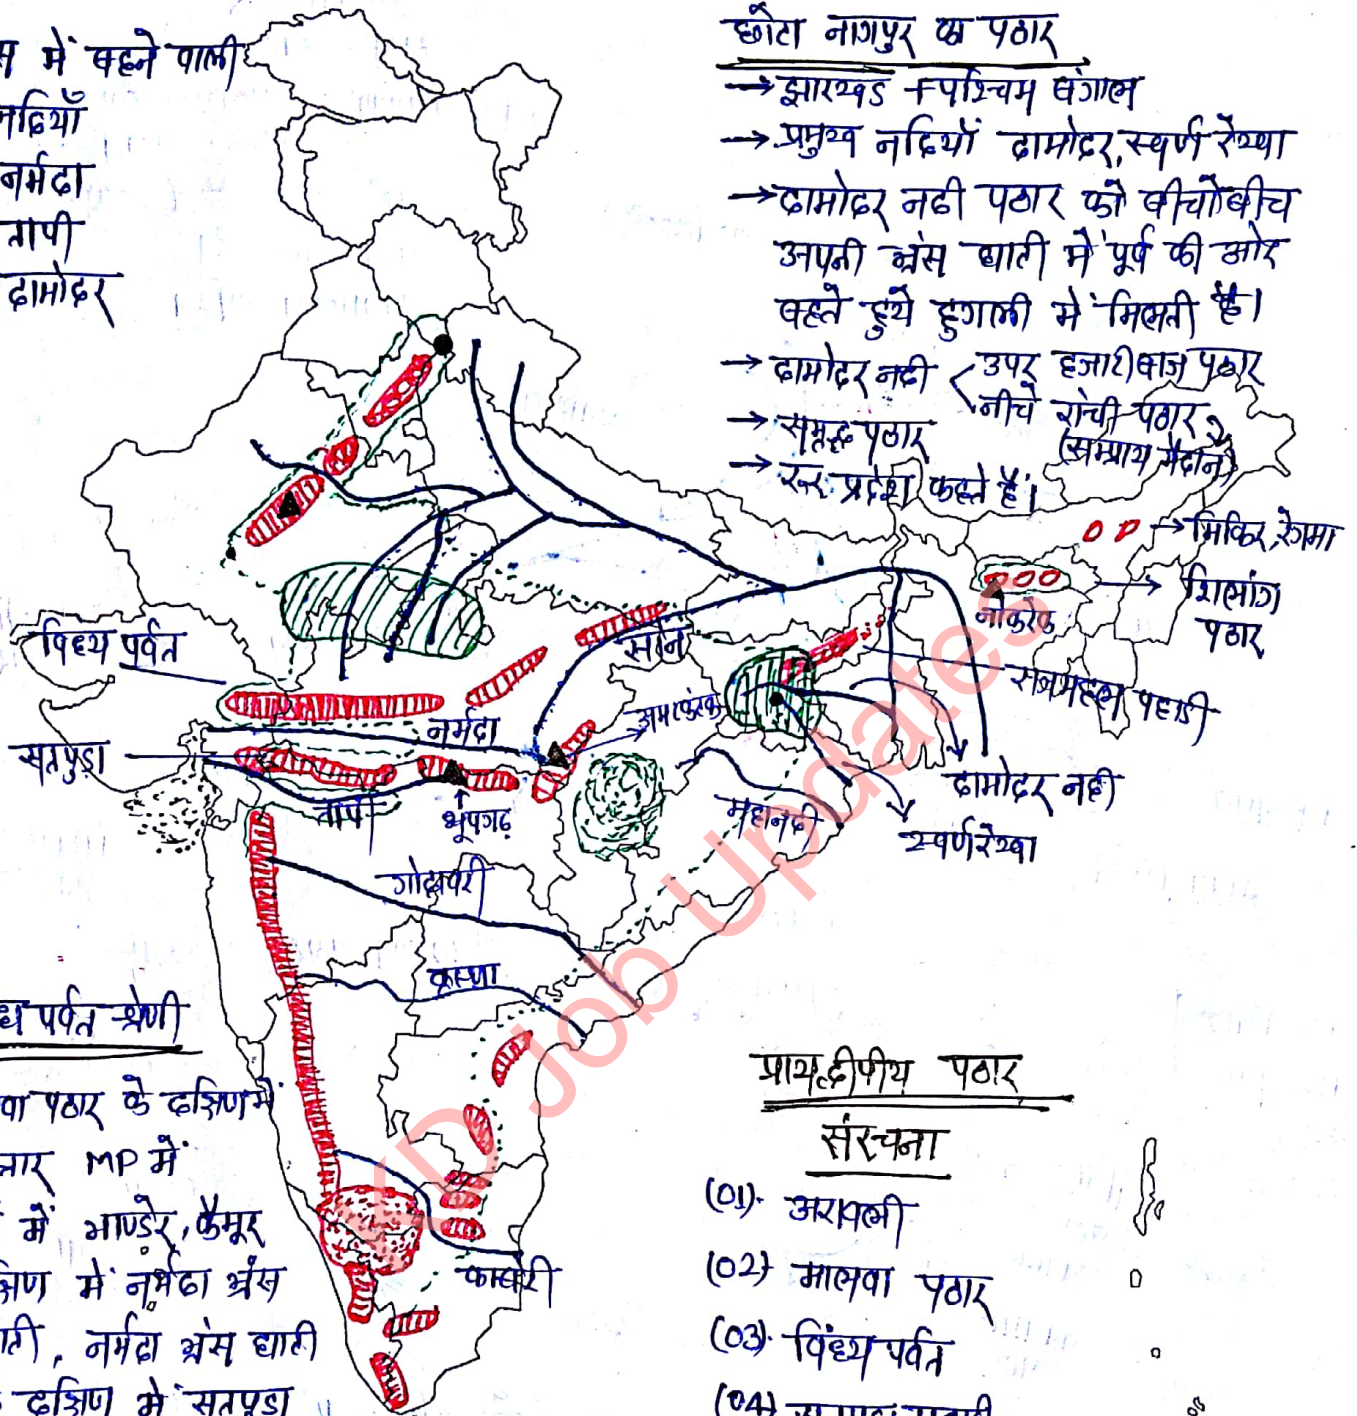 में बहने वाली
नदियाँ
नर्मदा
तापी
दामोदर
छोटा नागपुर का पठार
→ झारखंड + पश्चिम बंगाल
→ प्रमुख नदियाँ दामोदर, स्वर्ण रेखा
→ दामोदर नदी पठार को बीचोबीच
अपनी भ्रंस घाटी में पूर्व की ओर
बहते हुये हुगली में मिलती है।
→ दामोदर नदी < उपर हजारीबाज पठार
नीचे रांची पठार
(सम्प्राय मैदान)
→ समृद्ध पठार
→ रूर प्रदेश कहते हैं।
→ मिकिर, रेंगमा
→ शिलांग
पठार
नोकरेक
विंध्य पर्वत
सोन
राजमहल पहाडी
अमरकंटक
नर्मदा
सतपुड़ा
तापी
भूपगढ़
महानदी
दामोदर नदी
स्वर्णरेखा
गोदावरी
कृष्णा
कावेरी
KD Job Updates
पर्वत श्रेणी
पठार के दक्षिण में
MP में
में भाण्डेर, कैमूर
में नर्मदा भ्रंस
नर्मदा भ्रंस घाटी
दक्षिण में सतपुडा
प्रायद्वीपीय पठार
संरचना
(01). अरावली
(02) मालवा पठार
(03). विंध्य पर्वत
(04)